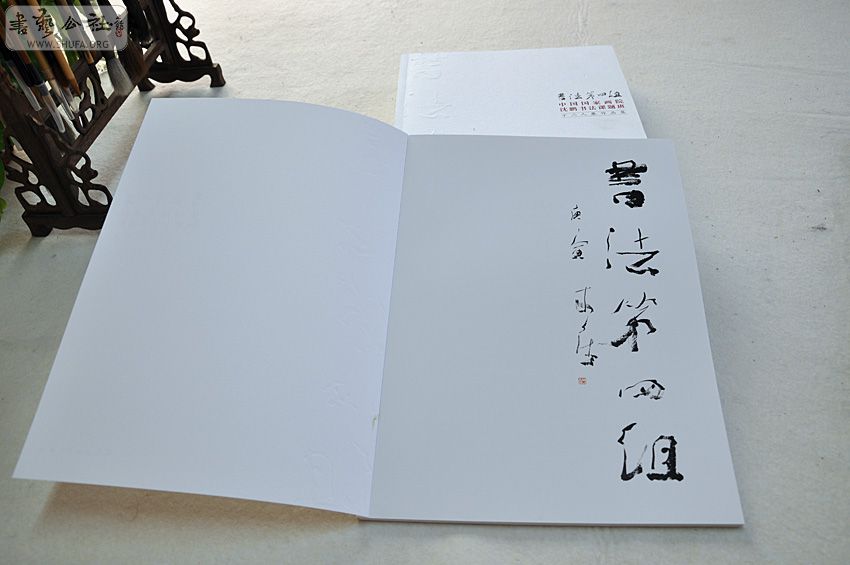 書藝公社
WWW.SHUFA.ORG
書法第四组
中国国家画院
沈鹏书法课题班
十六人展作品集
書法第四组
庚寅